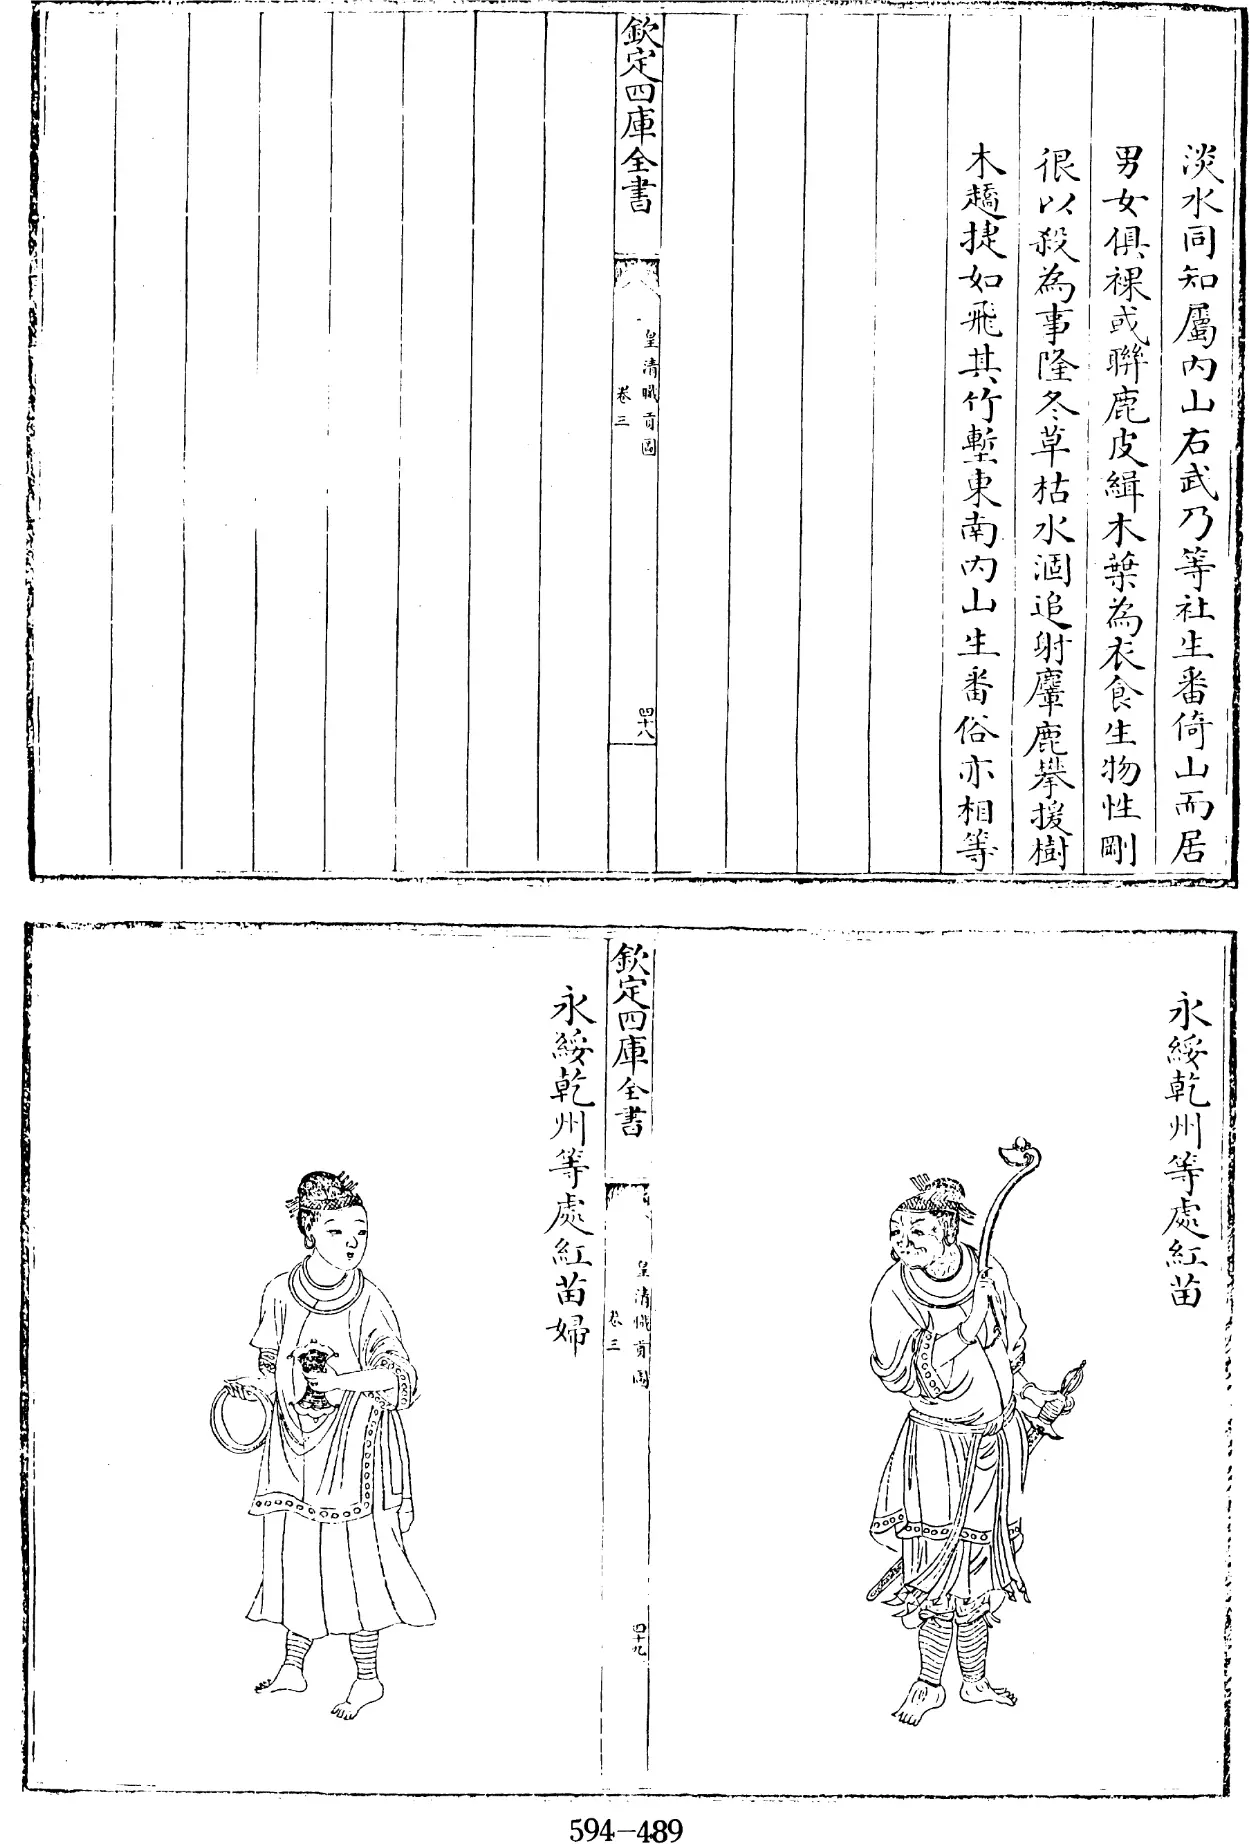 淡水同知屬內山右武乃等社生番倚山而居
男女俱裸或聯鹿皮緝木葉為衣食生物性剛
很以殺為事隆冬草枯水涸追射麞鹿攀援樹
木趫捷如飛其竹塹東南內山生番俗亦相等
欽定四庫全書
皇清職貢圖
卷三
四十八
永綏乾州等處紅苗
欽定四庫全書
皇清職貢圖
卷三
四十九
永綏乾州等處紅苗婦
594-489